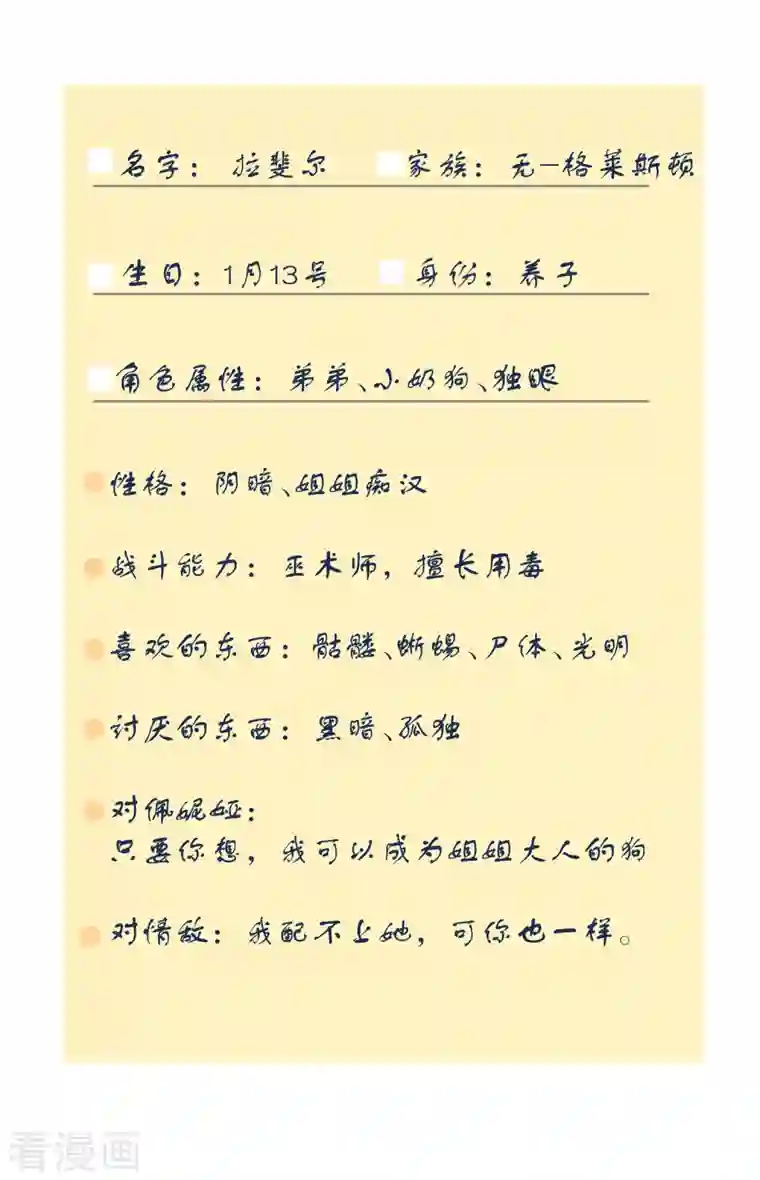 名字：拉斐尔 家族：无一格莱斯顿
生日：1月13号 身份：养子
角色属性：弟弟、小奶狗、独眼
性格：阴暗、姐姐痴汉
战斗能力：巫术师，擅长用毒
喜欢的东西：骷髅、蜥蜴、尸体、光明
讨厌的东西：黑暗、孤独
对佩妮娅：
只要你想，我可以成为姐姐大人的狗
对情敌：我配不上她，可你也一样。
看漫画